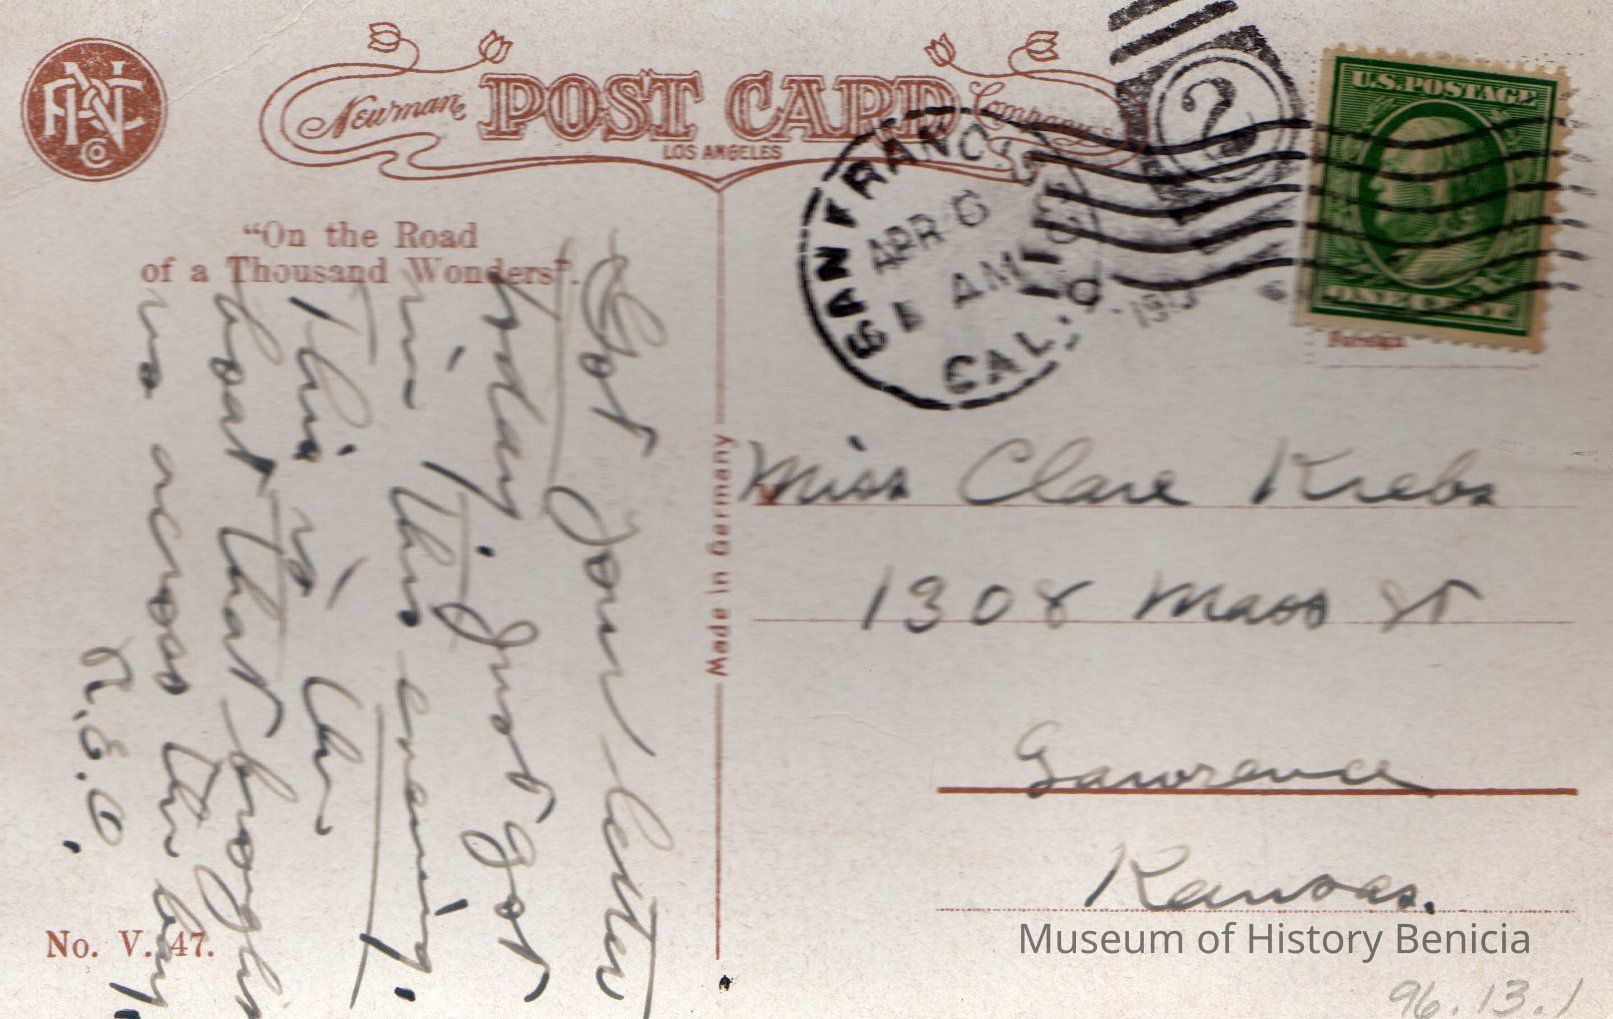 PNC CO
Newman POST CARD Company
LOS ANGELES
"On the Road
of a Thousand Wonders".
Got your letter
today. Just got
in this evening.
This is the
boat that brought
us across the bay.
R.E.O.
No. V. 47.
Made in Germany
SAN FRANCISCO
APR 6
AM
CAL.
2
U.S. POSTAGE
ONE CENT
Foreign
Miss Clare Krebs
1308 Mass St
Lawrence
Kansas.
Museum of History Benicia
96.13.1